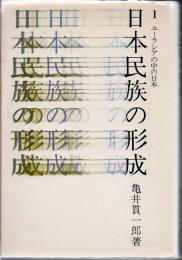 1
ユーラシアの中の日本
日本民族の形成
日本民族の形成
日本民族の形成
日本民族の形成
亀井貫一郎著